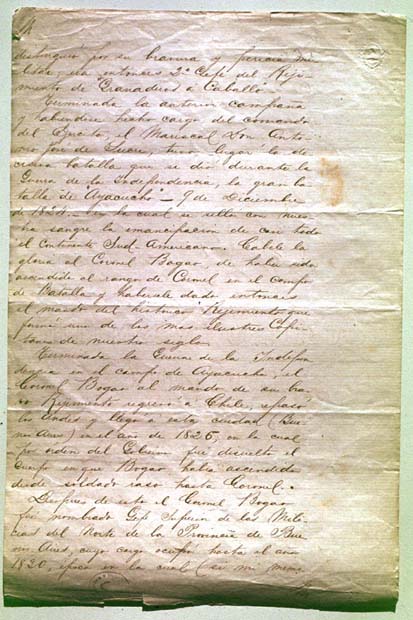 distinguió por su bravura y pericia mi-
litar; era entonces 2º Gefe del Reji-
miento de Granaderos a Caballo.
Terminada la anterior campaña
y habiendose hecho cargo del comando
del Ejército, el Mariscal Don Anto-
nio José de Sucre, tuvo lugar la de-
cisiva batalla que se dió durante la
Guerra de la Independencia, la gran ba-
talla de "Ayacucho" - 9 de Diciembre
de 1824 - en la cual se selló con nues-
tra sangre la emancipación de casi todo
el Continente Sud-Americano. Cabele la
gloria al Coronel Bogar, de haber sido
ascendido al rango de Coronel en el campo
de Batalla y habersele dado entonces
el mando del histórico Rejimiento que
formó uno de los mas ilustres Capi-
tanes de nuestro siglo.
Terminada la Guerra de la Indepen-
dencia en el campo de Ayacucho, el
Coronel Bogar al mando de su bra-
vo Rejimiento regresó a Chile, repasó
los Andes y llegó a esta ciudad (Bue-
nos Aires) en el año de 1826, en la cual
por orden del Gobierno fué disuelto el
Cuerpo en que Bogar habia ascendido
desde soldado raso hasta Coronel.
Despues de esto el Coronel Bogar
fué nombrado Gefe Superior de las Mili-
cias del Norte de la Provincia de Bue-
nos Aires, cuyo cargo ocupó hasta el año
1830, época en la cual (si mi memo-